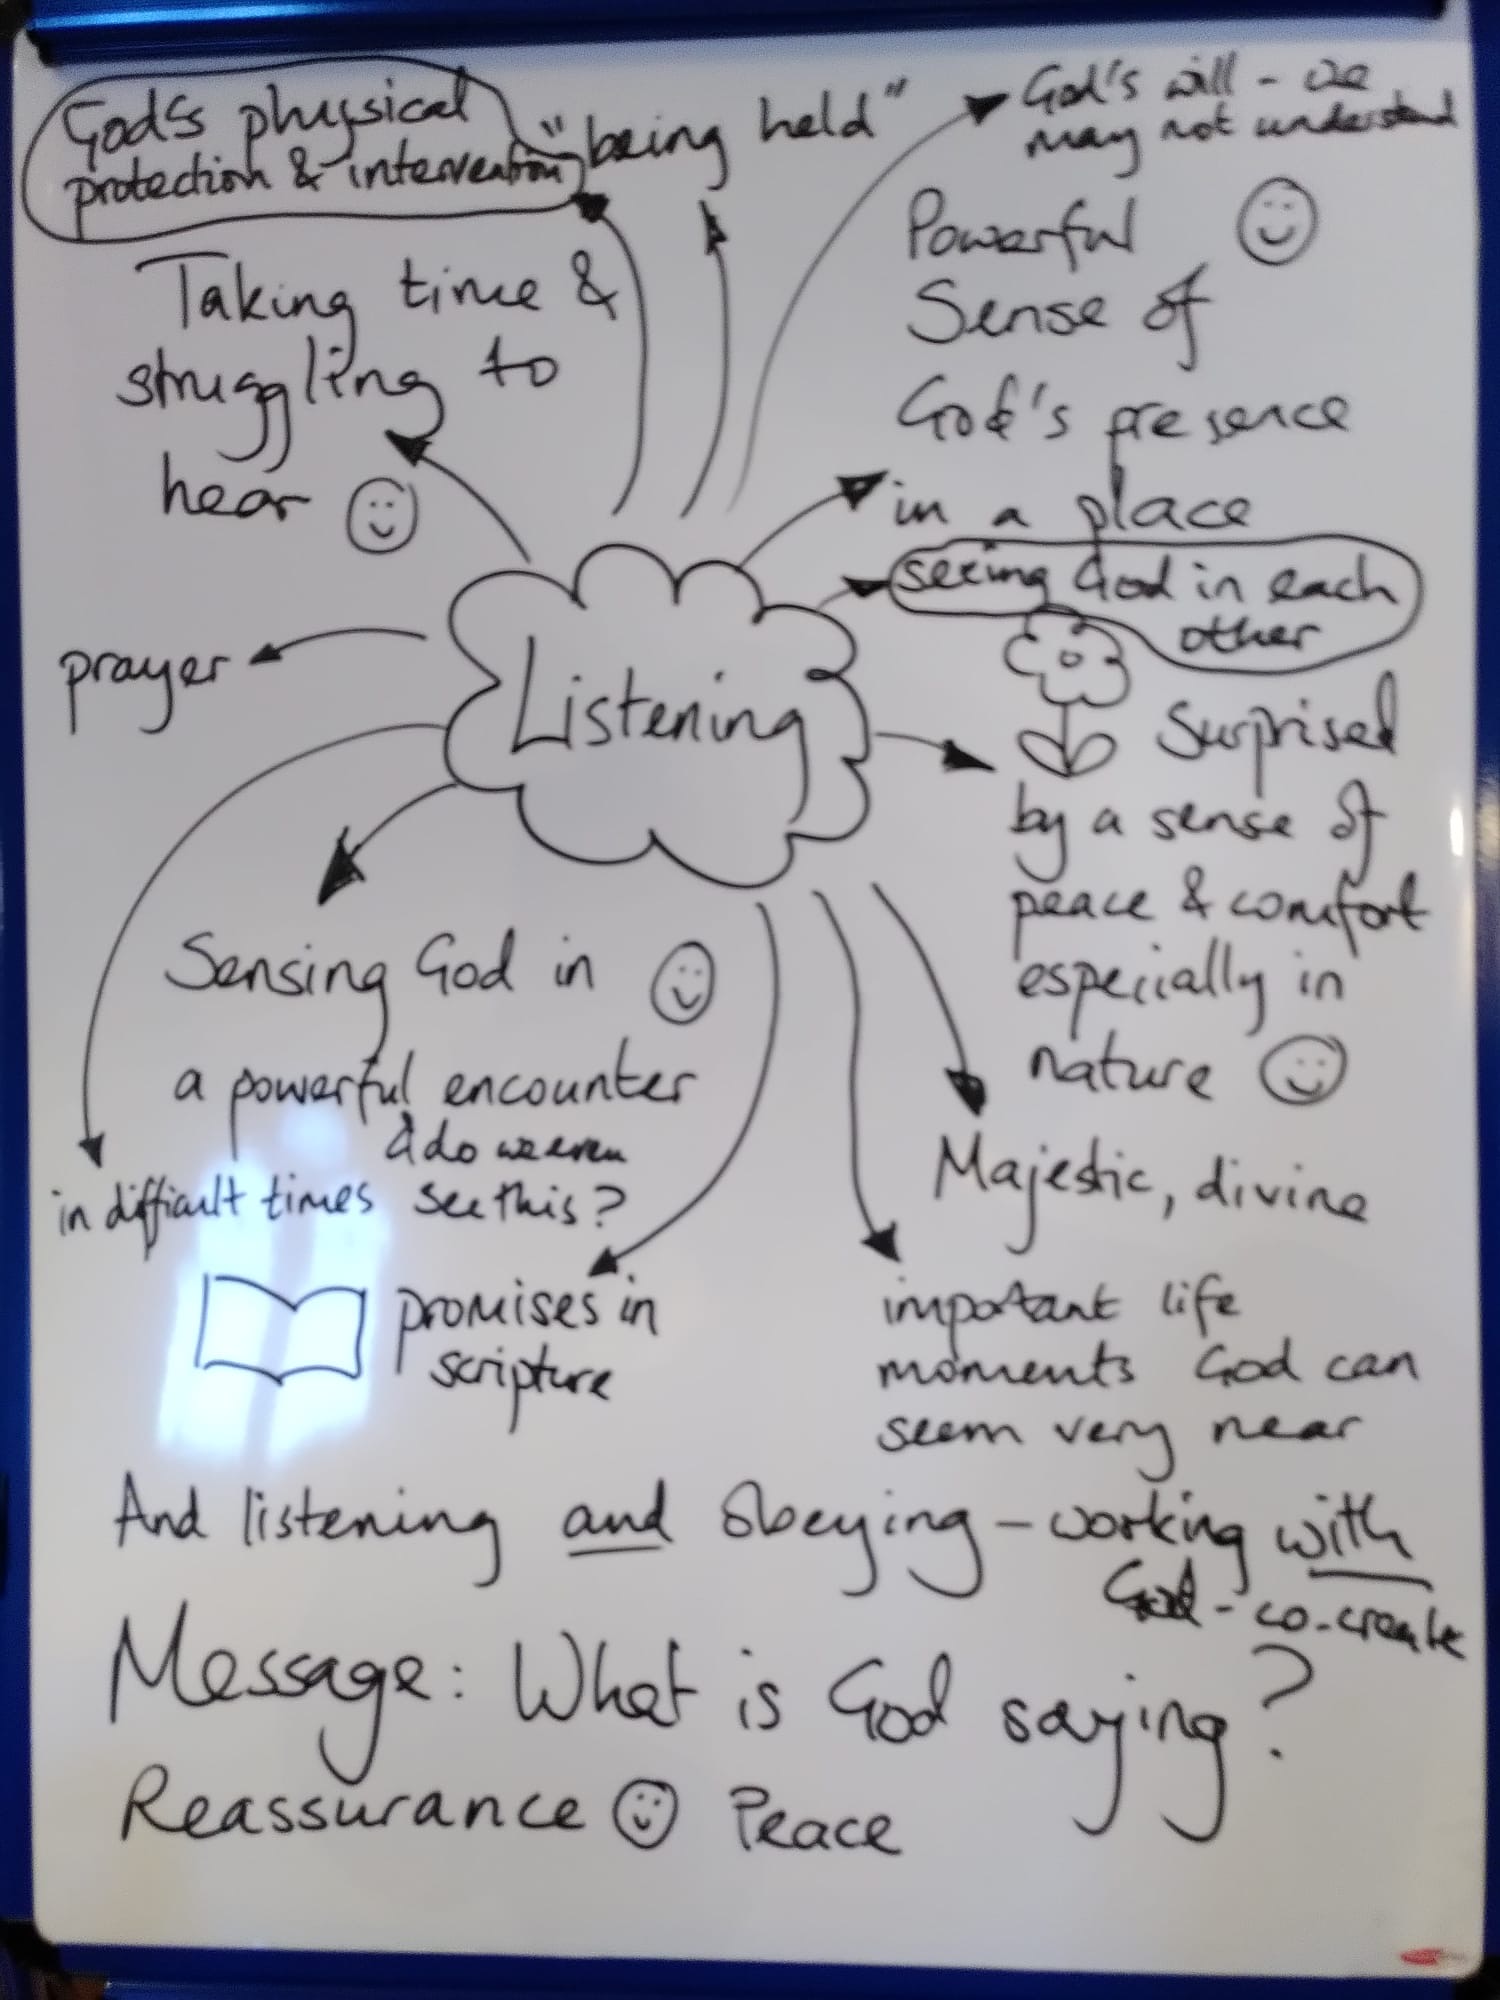 God's physical
protection & intervention
"being held"
God's will - we
may not understand
Taking time &
struggling to
hear
Powerful
Sense of
God's presence
in a place
seeing God in each
other
prayer
Listening
Surprised
by a sense of
peace & comfort
especially in
nature
Sensing God in
a powerful encounter
& do we even
see this?
in difficult times
Majestic, divine
promises in
scripture
important life
moments God can
seem very near
And listening and obeying - working with
God - co-create
Message: What is God saying?
Reassurance Peace